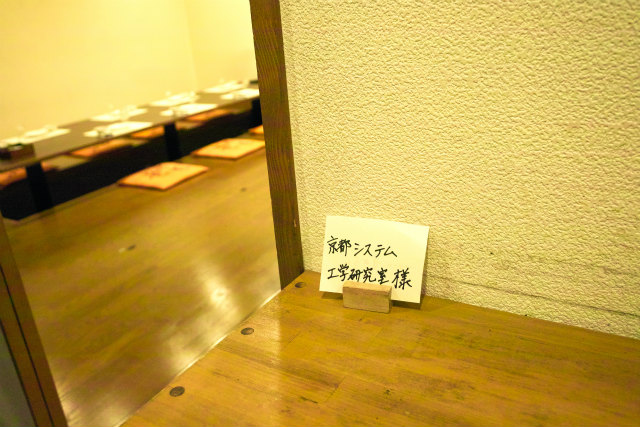 京都システム
工学研究室様